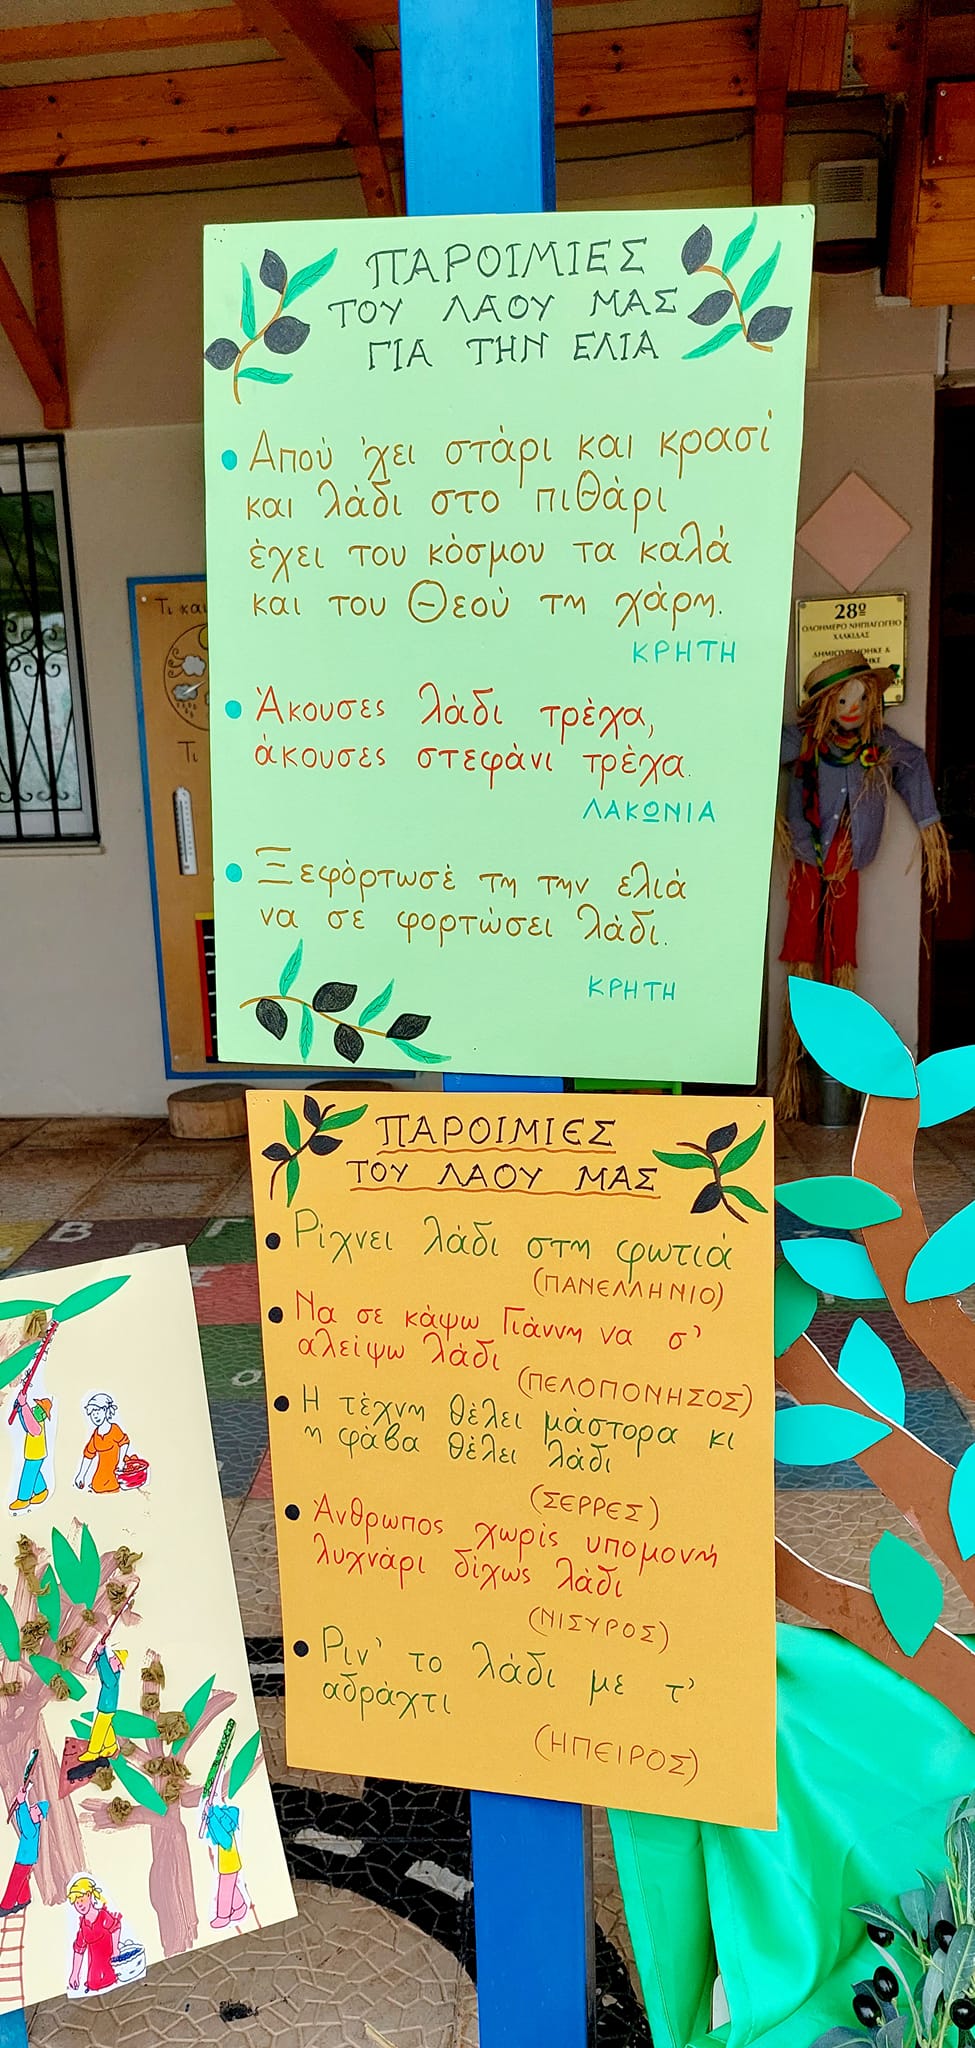 ΠΑΡΟΙΜΙΕΣ
ΤΟΥ ΛΑΟΥ ΜΑΣ
ΓΙΑ ΤΗΝ ΕΛΙΑ
Απού 'χει στάρι και κρασί
και λάδι στο πιθάρι
έχει του κόσμου τα καλά
και του Θεού τη χάρη.
ΚΡΗΤΗ
Άκουσες λάδι τρέχα,
άκουσες στεφάνι τρέχα.
ΛΑΚΩΝΙΑ
Ξεφόρτωσέ τη την ελιά
να σε φορτώσει λάδι.
ΚΡΗΤΗ
Τι και
Τι
28ο
ΟΛΟΗΜΕΡΟ ΝΗΠΙΑΓΩΓΕΙΟ
ΧΑΛΚΙΔΑΣ
ΠΑΡΟΙΜΙΕΣ
ΤΟΥ ΛΑΟΥ ΜΑΣ
Ρίχνει λάδι στη φωτιά
(ΠΑΝΕΛΛΗΝΙΟ)
Να σε κάψω Γιάννη να σ'
αλείψω λάδι
(ΠΕΛΟΠΟΝΗΣΟΣ)
Η τέχνη θέλει μάστορα κι
η φάβα θέλει λάδι
(ΣΕΡΡΕΣ)
Άνθρωπος χωρίς υπομονή
λυχνάρι δίχως λάδι
(ΝΙΣΥΡΟΣ)
Ριν' το λάδι με τ'
αδράχτι
(ΗΠΕΙΡΟΣ)
Β Γ